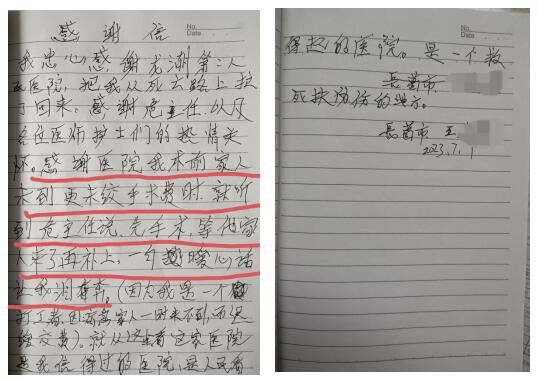 No.
Date
感谢信
我忠心感谢龙湖第二人
民医院,把我从死亡路上拉
了回来。感谢危主任以及
各位医师护士们的热情关
怀。感谢医院我术前家人
未到更未绞手术费时,就听
到危主任说,先手术,等他家
人来了再补上,一句暖心话
让我泪奔。(因为我是一个
打工者,因离家人一时来不到,而没
缴交费)。就从这上看这家医院
是我信得过的医院,是人民看
No.
Date
得起的医院。是一个救
死扶伤的地方。
长葛市
长葛市 王
2023.7.1